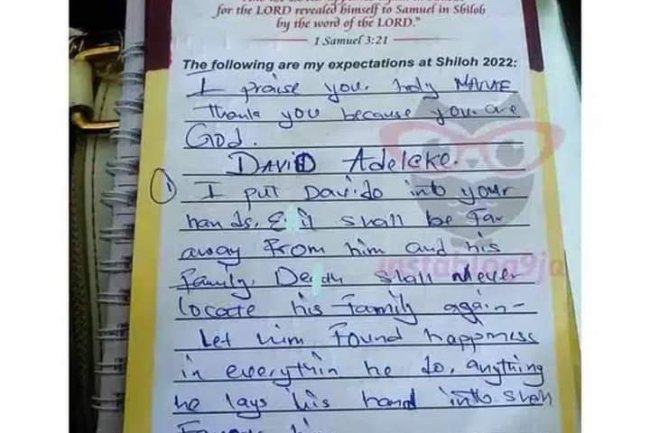 for the LORD revealed himself to Samuel in Shiloh
by the word of the LORD."
1 Samuel 3:21
The following are my expectations at Shiloh 2022:
I praise your holy NAME
Thank you because you are
God.
DAVID Adeleke.
① I put Davido into your
hands, Evil shall be far
away from him and his
family, Death shall Never
locate his family again-
Let him found happiness
in everythin he do, anything
he lays his hand into shall
instablog9ja